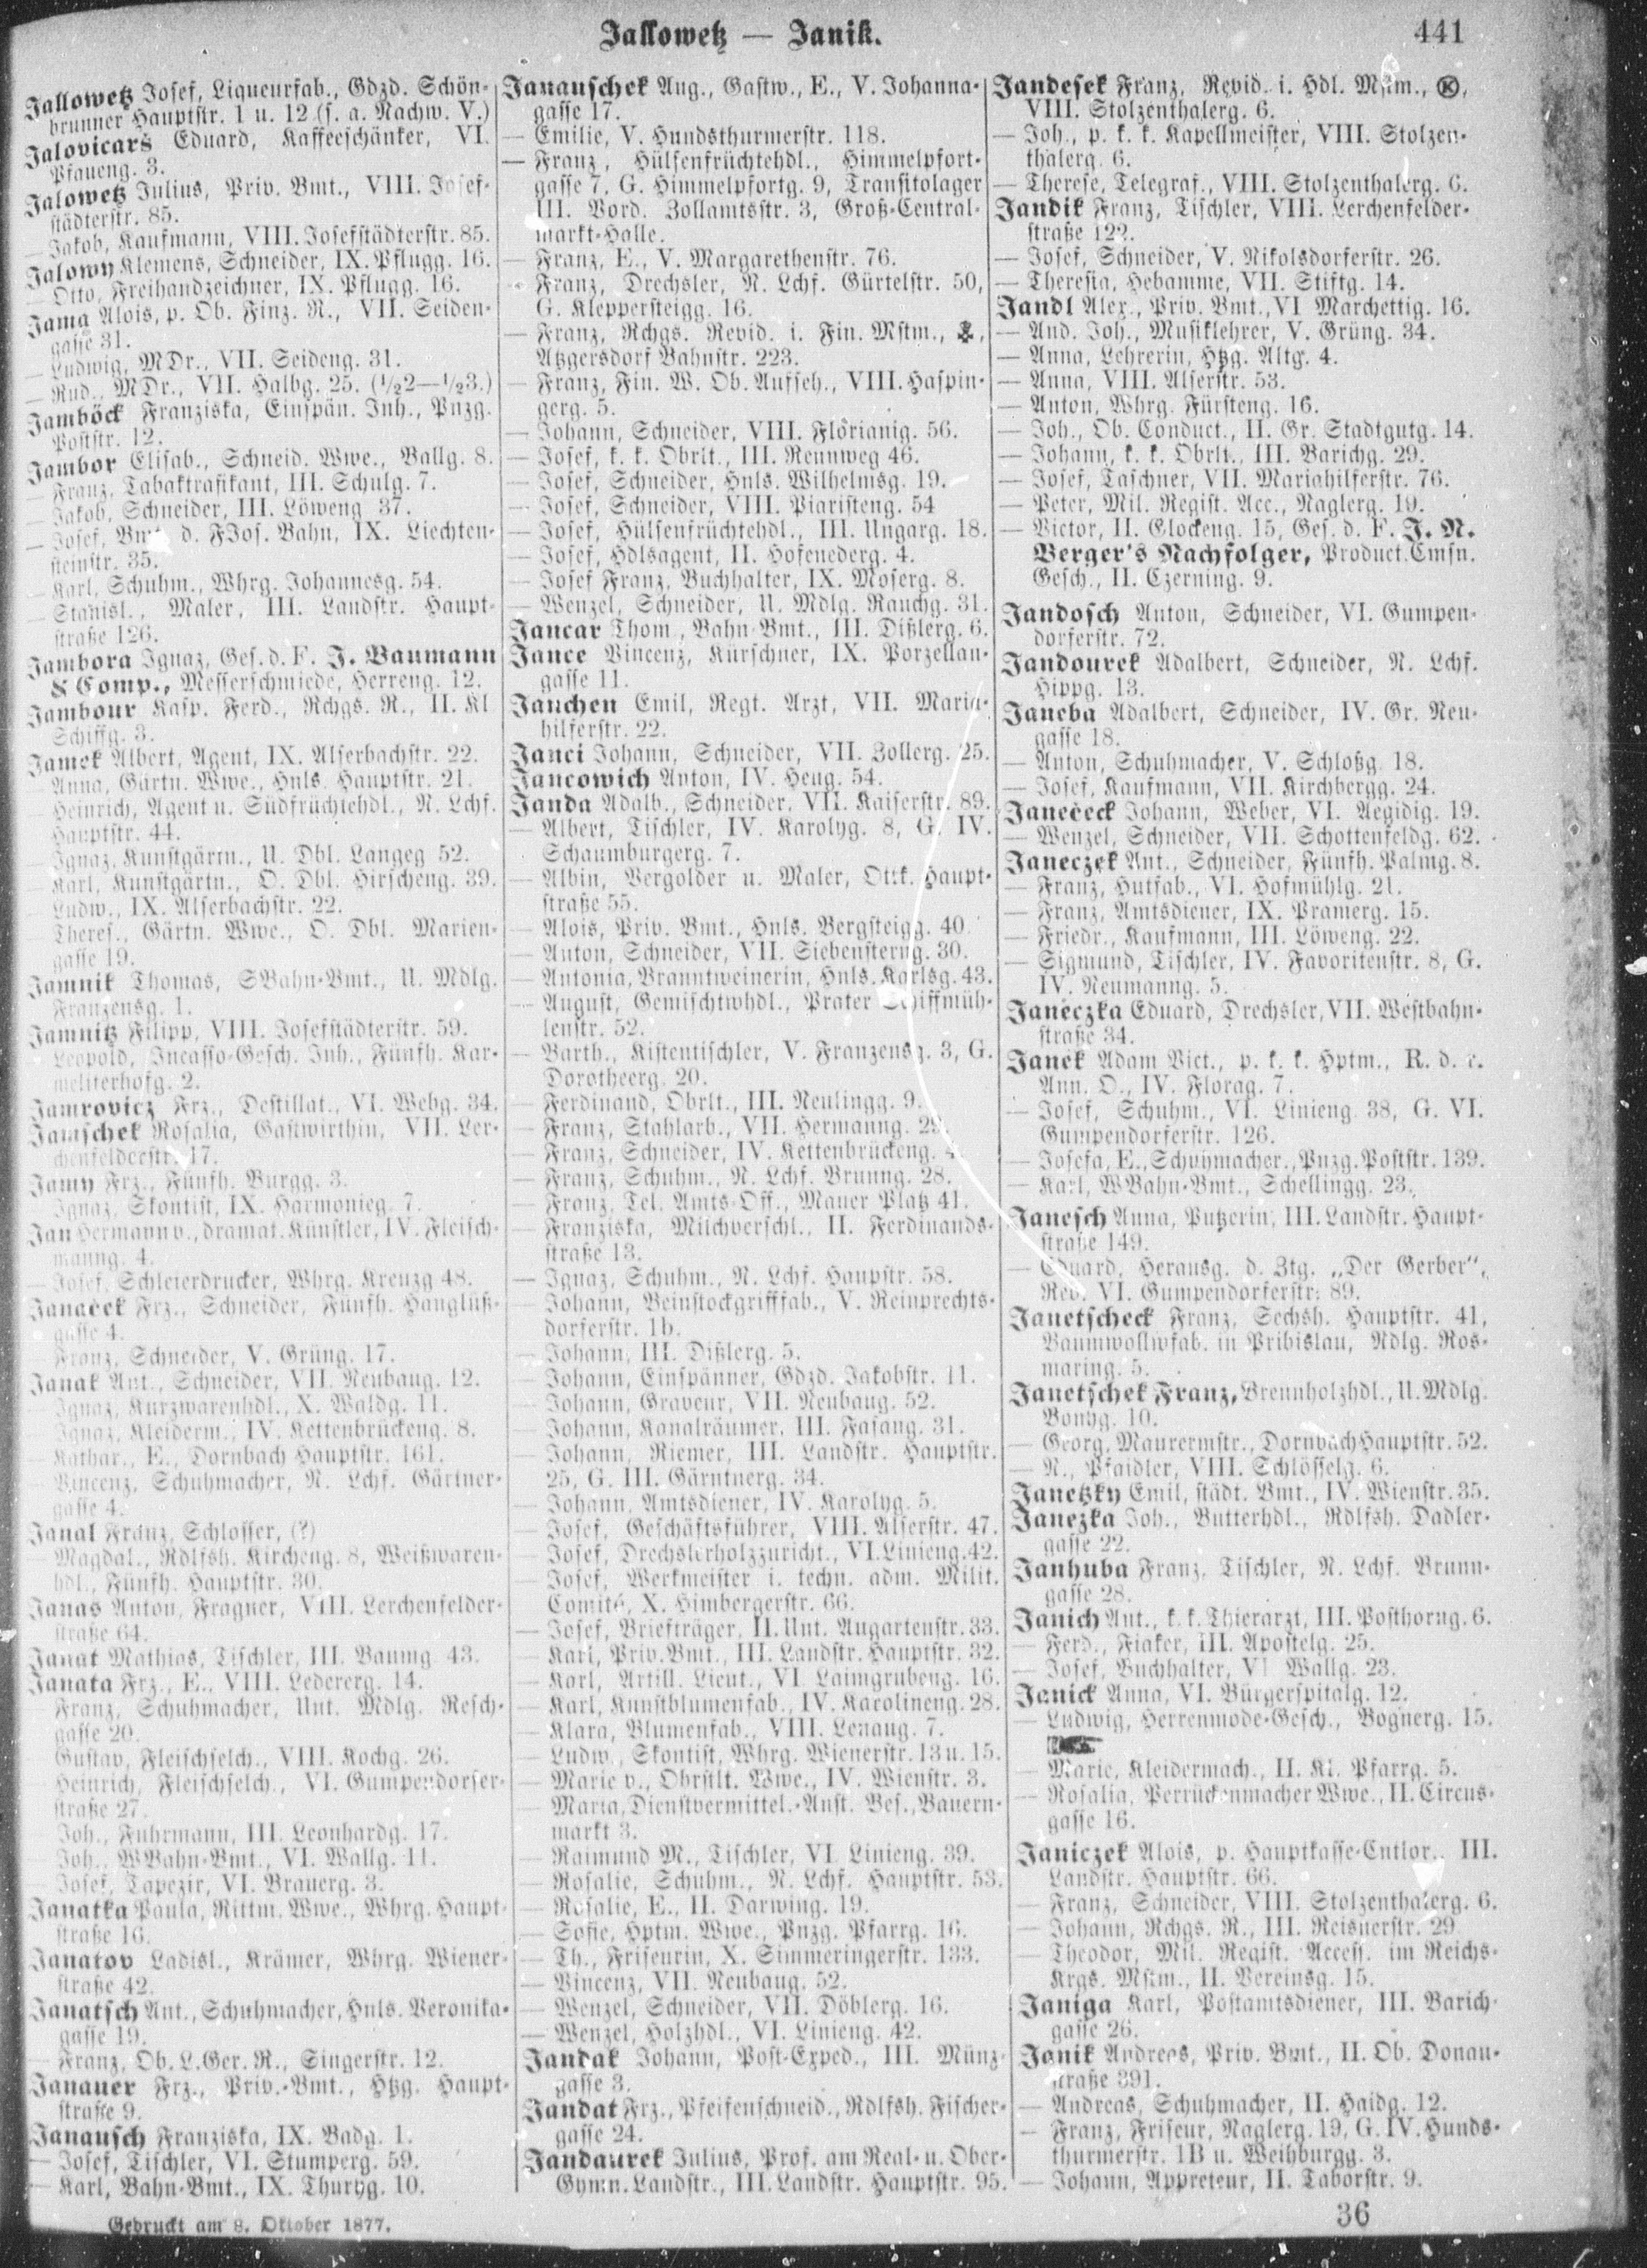 Jallowetz — Janik.
441
Jallowetz Josef, Liqueurfab., Gdzd. Schön-
brunner Hauptstr. 1 u. 12 (s. a. Nachw. V.)
Jalovicars Eduard, Kaffeeschänker, VI.
Pfaueng. 3.
Jalowetz Julius, Priv. Bmt., VIII. Josef-
städterstr. 85.
— Jakob, Kaufmann, VIII. Josefstädterstr. 85.
Jalowy Klemens, Schneider, IX. Pflugg. 16.
— Otto, Freihandzeichner, IX. Pflugg. 16.
Jama Alois, p. Ob. Finz. R., VII. Seiden-
gasse 31.
— Ludwig, MDr., VII. Seideng. 31.
— Rud., MDr., VII. Halbg. 25. (1/22—1/23.)
Jamböck Franziska, Einspän. Inh., Pnzg.
Poststr. 12.
Jambor Elisab., Schneid. Wwe., Ballg. 8.
— Franz, Tabaktrafikant, III. Schulg. 7.
— Jakob, Schneider, III. Löweng 37.
— Josef, d. FJos. Bahn, IX. Liechten-
steinstr. 35.
— Karl, Schuhm., Whrg. Johannesg. 54.
— Stanisl., Maler, III. Landstr. Haupt-
straße 126.
Jambora Ignaz, Ges. d. F. J. Baumann
& Comp., Messerschmiede, Herreng. 12.
Jambour Kasp. Ferd., Rchgs. R., II. Kl
Schiffg. 3.
Jamek Albert, Agent, IX. Alserbachstr. 22.
— Anna, Gärtn. Wwe., Hnls. Hauptstr. 21.
— Heinrich, Agent u. Südfrüchtehdl., N. Lchf.
Hauptstr. 44.
— Ignaz, Kunstgärtn., U. Dbl. Langeg 52.
— Karl, Kunstgärtn., O. Dbl. Hirscheng. 39.
— Ludw., IX. Alserbachstr. 22.
— Theres., Gärtn. Wwe., O. Dbl. Marien-
gasse 19.
Jamnik Thomas, SBahn-Bmt., U. Mdlg.
Franzensg. 1.
Jamnitz Filipp, VIII. Josefstädterstr. 59.
— Leopold, Incasso-Gesch. Inh., Fünfh. Kar-
meliterhofg. 2.
Jamrovicz Frz., Destillat., VI. Webg. 34.
Jamschek Rosalia, Gastwirthin, VII. Ler-
chenfelderstr. 17.
Jamy Frz., Fünfh. Burgg. 3.
— Ignaz, Skontist, IX. Harmonieg. 7.
Jan Hermann v., dramat. Künstler, IV. Fleisch-
manng. 4.
— Josef, Schleierdrucker, Whrg. Kreuzg 48.
Janaček Frz., Schneider, Fünfh. Hanglüß-
gasse 4.
— Franz, Schneider, V. Grüng. 17.
Janak Ant., Schneider, VII. Neubaug. 12.
— Ignaz, Kurzwarenhdl., X. Waldg. 11.
— Ignaz, Kleiderm., IV. Kettenbrückeng. 8.
— Kathar., E., Dornbach Hauptstr. 161.
— Vincenz, Schuhmacher, N. Lchf. Gärtner-
gasse 4.
Janal Franz, Schlosser, (?)
— Magdal., Rdlfsh. Kircheng. 8, Weißwaren-
hdl., Fünfh. Hauptstr. 30.
Janas Anton, Fragner, VIII. Lerchenfelder-
straße 64.
Janat Mathias, Tischler, III. Baumg 43.
Janata Frz., E., VIII. Ledererg. 14.
— Franz, Schuhmacher, Unt. Mdlg. Resch-
gasse 20.
— Gustav, Fleischselch., VIII. Kochg. 26.
— Heinrich, Fleischselch., VI. Gumpendorfer-
straße 27.
— Joh., Fuhrmann, III. Leonhardg. 17.
— Joh., WBahn-Bmt., VI. Wallg. 11.
— Josef, Tapezir, VI. Brauerg. 3.
Janatka Paula, Rittm. Wwe., Whrg. Haupt-
straße 16.
Janatov Ladisl., Krämer, Whrg. Wiener-
straße 42.
Janatsch Ant., Schuhmacher, Hnls. Veronika-
gasse 19.
— Franz, Ob. L. Ger. R., Singerstr. 12.
Janauer Frz., Priv.-Bmt., Htzg. Haupt-
straße 9.
Janausch Franziska, IX. Badg. 1.
— Josef, Tischler, VI. Stumperg. 59.
— Karl, Bahn-Bmt., IX. Thuryg. 10.
Janauschek Aug., Gastw., E., V. Johanna-
gasse 17.
— Emilie, V. Hundsthurmerstr. 118.
— Franz, Hülsenfrüchtehdl., Himmelpfort-
gasse 7, G. Himmelpfortg. 9, Transitolager
III. Vord. Zollamtsstr. 3, Groß-Central-
markt-Halle.
— Franz, E., V. Margarethenstr. 76.
— Franz, Drechsler, N. Lchf. Gürtelstr. 50,
G. Kleppersteigg. 16.
— Franz, Rchgs. Revid. i. Fin. Mstm.,
Atzgersdorf Bahnstr. 223.
— Franz, Fin. W. Ob. Aufseh., VIII. Haspin-
gerg. 5.
— Johann, Schneider, VIII. Florianig. 56.
— Josef, k. k. Obrlt., III. Rennweg 46.
— Josef, Schneider, Hnls. Wilhelmsg. 19.
— Josef, Schneider, VIII. Piaristeng. 54
— Josef, Hülsenfrüchtehdl., III. Ungarg. 18.
— Josef, Hdlsagent, II. Hofenederg. 4.
— Josef Franz, Buchhalter, IX. Moserg. 8.
— Wenzel, Schneider, U. Mdlg. Rauchg. 31.
Jancar Thom., Bahn-Bmt., III. Dißlerg. 6.
Jance Vincenz, Kürschner, IX. Porzellan-
gasse 11.
Janchen Emil, Regt. Arzt, VII. Maria-
hilferstr. 22.
Janci Johann, Schneider, VII. Zollerg. 25.
Jancowich Anton, IV. Heug. 54.
Janda Adalb., Schneider, VII. Kaiserstr. 89.
— Albert, Tischler, IV. Karolyg. 8, G. IV.
Schaumburgerg. 7.
— Albin, Vergolder u. Maler, Ottk. Haupt-
straße 55.
— Alois, Priv. Bmt., Hnls. Bergsteigg. 40.
— Anton, Schneider, VII. Siebensterng. 30.
— Antonia, Branntweinerin, Hnls. Karlsg. 43.
— August, Gemischtwhdl., Prater Schiffmüh-
lenstr. 52.
— Barth., Kistentischler, V. Franzensg. 3, G.
Dorotheerg. 20.
— Ferdinand, Obrlt., III. Neulingg. 9.
— Franz, Stahlarb., VII. Hermanng. 29.
— Franz, Schneider, IV. Kettenbrückeng.
— Franz, Schuhm., N. Lchf. Brunng. 28.
— Franz, Tel. Amts-Off., Mauer Platz 41.
— Franziska, Milchverschl., II. Ferdinands-
straße 13.
— Ignaz, Schuhm., N. Lchf. Haupstr. 58.
— Johann, Beinstockgrifffab., V. Reinprechts-
dorferstr. 1b.
— Johann, III. Dißlerg. 5.
— Johann, Einspänner, Gdzd. Jakobstr. 11.
— Johann, Graveur, VII. Neubaug. 52.
— Johann, Kanalräumer, III. Fasang. 31.
— Johann, Riemer, III. Landstr. Hauptstr.
25, G. III. Gärntnerg. 34.
— Johann, Amtsdiener, IV. Karolyg. 5.
— Josef, Geschäftsführer, VIII. Alserstr. 47.
— Josef, Drechslerholzzuricht., VI. Linieng. 42.
— Josef, Werkmeister i. techn. adm. Milit.
Comité, X. Himbergerstr. 66.
— Josef, Briefträger, II. Unt. Augartenstr. 33.
— Karl, Priv. Bmt., III. Landstr. Hauptstr. 32.
— Karl, Artill. Lieut., VI Laimgrubeng. 16.
— Karl, Kunstblumenfab., IV. Karolineng. 28.
— Klara, Blumenfab., VIII. Lenaug. 7.
— Ludw., Skontist, Whrg. Wienerstr. 13 u. 15.
— Marie v., Obrstlt. Wwe., IV. Wienstr. 3.
— Maria, Dienstvermittel.-Anst. Bes., Bauern-
markt 3.
— Raimund M., Tischler, VI. Linieng. 39.
— Rosalie, Schuhm., N. Lchf. Hauptstr. 53.
— Rosalie, E., II. Darwing. 19.
— Sofie, Hptm. Wwe., Pnzg. Pfarrg. 16.
— Th., Friseurin, X. Simmeringerstr. 133.
— Vincenz, VII. Neubaug. 52.
— Wenzel, Schneider, VII. Döblerg. 16.
— Wenzel, Holzhdl., VI. Linieng. 42.
Jandak Johann, Post-Exped., III. Münz-
gasse 3.
Jandat Frz., Pfeifenschneid., Rdlfsh. Fischer-
gasse 24.
Jandaurek Julius, Prof. am Real- u. Ober-
Gymn. Landstr., III. Landstr. Hauptstr. 95.
Jandesek Franz, Revid. i. Hdl. Mstm.,
VIII. Stolzenthalerg. 6.
— Joh., p. k. k. Kapellmeister, VIII. Stolzen-
thalerg. 6.
— Therese, Telegraf., VIII. Stolzenthalerg. 6.
Jandik Franz, Tischler, VIII. Lerchenfelder-
straße 122.
— Josef, Schneider, V. Nikolsdorferstr. 26.
— Theresia, Hebamme, VII. Stiftg. 14.
Jandl Alex., Priv. Bmt., VI Marchettig. 16.
— And. Joh., Musiklehrer, V. Grüng. 34.
— Anna, Lehrerin, Htzg. Altg. 4.
— Anna, VIII. Alserstr. 53.
— Anton, Whrg. Fürsteng. 16.
— Joh., Ob. Conduct., II. Gr. Stadtgutg. 14.
— Johann, k. k. Obrlt., III. Barichg. 29.
— Josef, Taschner, VII. Mariahilferstr. 76.
— Peter, Mil. Regist. Acc., Naglerg. 19.
— Victor, II. Glockeng. 15, Ges. d. F. J. N.
Berger's Nachfolger, Product. Emsn.
Gesch., II. Czerning. 9.
Jandosch Anton, Schneider, VI. Gumpen-
dorferstr. 72.
Jandourek Adalbert, Schneider, N. Lchf.
Hippg. 13.
Janeba Adalbert, Schneider, IV. Gr. Neu-
gasse 18.
— Anton, Schuhmacher, V. Schloßg. 18.
— Josef, Kaufmann, VII. Kirchbergg. 24.
Janeček Johann, Weber, VI. Aegidig. 19.
— Wenzel, Schneider, VII. Schottenfeldg. 62.
Janeczek Ant., Schneider, Fünfh. Palmg. 8.
— Franz, Hutfab., VI. Hofmühlg. 21.
— Franz, Amtsdiener, IX. Pramerg. 15.
— Friedr., Kaufmann, III. Löweng. 22.
— Sigmund, Tischler, IV. Favoritenstr. 8, G.
IV. Neumanng. 5.
Janeczka Eduard, Drechsler, VII. Westbahn-
straße 34.
Janek Adam Vict., p. k. k. Hptm., R. d.
Ann. O., IV. Florag. 7.
— Josef, Schuhm., VI. Linieng 38, G. VI.
Gumpendorferstr. 126.
— Josefa, E., Schuhmacher., Pnzg. Poststr. 139.
— Karl, WBahn-Bmt., Schellingg. 23.
Janesch Anna, Putzerin, III. Landstr. Haupt-
straße 149.
— Eduard, Herausg. d. Ztg. „Der Gerber“,
Red. VI. Gumpendorferstr. 89.
Janetscheck Franz, Sechsh. Hauptstr. 41,
Baumwollwfab. in Pribislau, Ndlg. Ros-
maring. 5.
Janetschek Franz, Brennholzhdl., U. Mdlg.
Bonyg. 10.
— Georg, Maurermstr., Dornbach Hauptstr. 52.
— N., Pfaidler, VIII. Schlösselg. 6.
Janetzky Emil, städt. Bmt., IV. Wienstr. 35.
Janezka Joh., Butterhdl., Rdlfsh. Dadler-
gasse 22.
Janhuba Franz, Tischler, N. Lchf. Brunn-
gasse 28.
Janich Ant., k. k. Thierarzt, III. Posthorng. 6.
— Ferd., Fiaker, III. Apostelg. 25.
— Josef, Buchhalter, VI Wallg. 23.
Janick Anna, VI. Bürgerspitalg. 12.
— Ludwig, Herrenmode-Gesch., Bognerg. 15.
— Marie, Kleidermach., II. Kl. Pfarrg. 5.
— Rosalia, Perrückenmacher Wwe., II. Circus-
gasse 16.
Janiczek Alois, p. Hauptkasse-Cntlor., III.
Landstr. Hauptstr. 66.
— Franz, Schneider, VIII. Stolzenthalerg. 6.
— Johann, Rchgs. R., III. Reisnerstr. 29
— Theodor, Mil. Regist. Access. im Reichs-
Krgs. Mstm., II. Vereinsg. 15.
Janiga Karl, Postamtsdiener, III. Barich-
gasse 26.
Janik Andreas, Priv. Bmt., II. Ob. Donau-
straße 391.
— Andreas, Schuhmacher, II. Haidg. 12.
— Franz, Friseur, Naglerg. 19, G. IV. Hunds-
thurmerstr. 1B u. Weihburgg. 3.
— Johann, Appreteur, II. Taborstr. 9.
Gedruckt am 8. Oktober 1877.
36